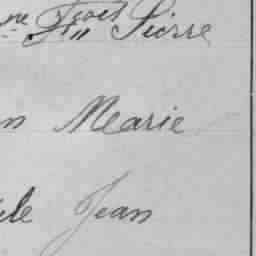 ne Fçois Pierre
n Marie
le Jean